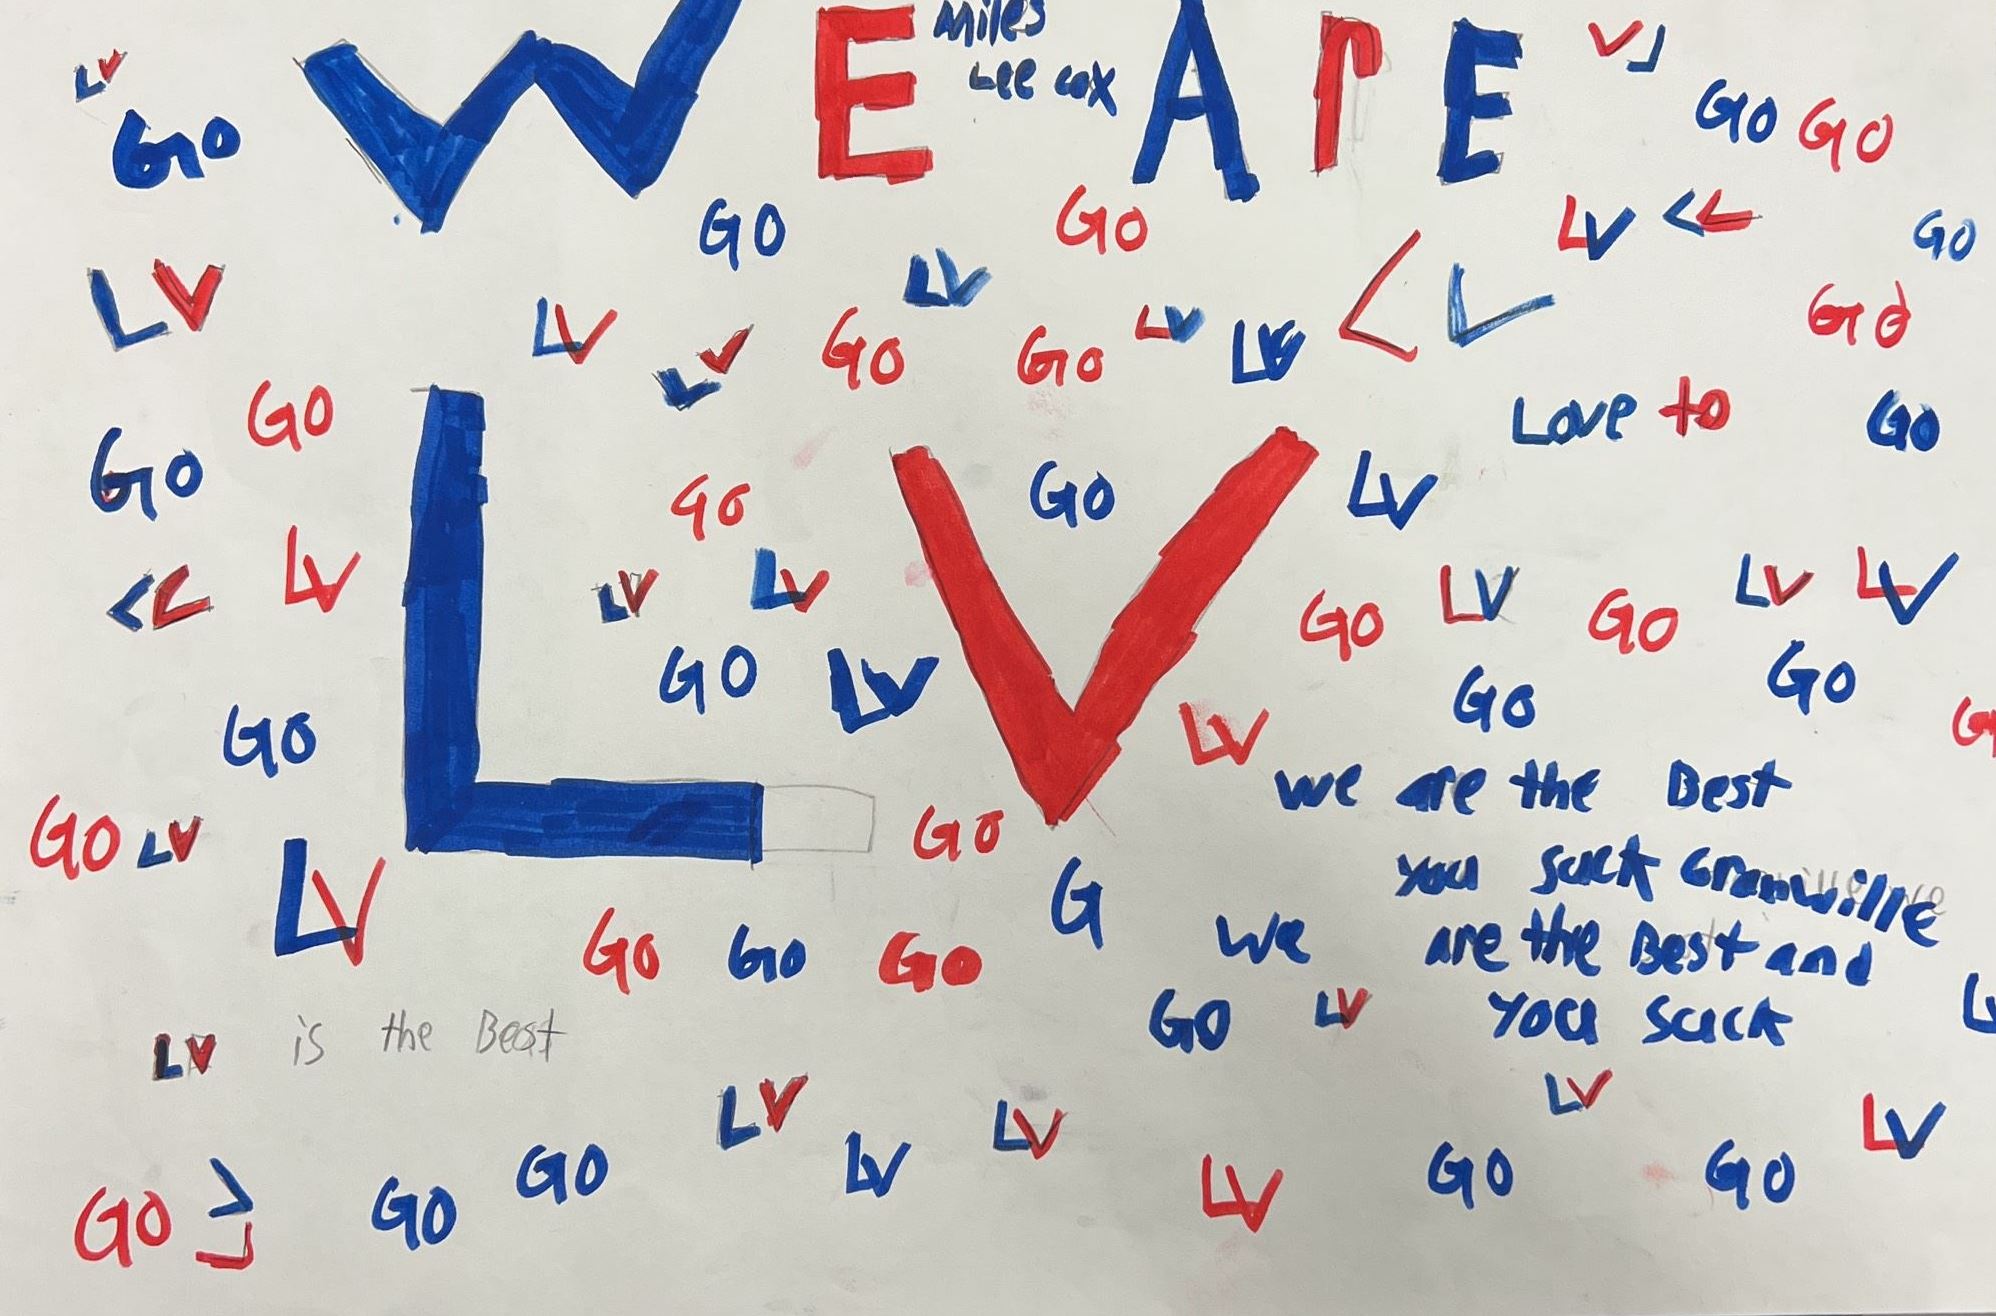 Miles
WE ARE
Lee cox
LV
VL
GO
GO GO
GO
GO
LV
LV
GO
LV
LV
LV
LV
GO
GO
LV
LV
LV
GO
GO
Love to
GO
GO
GO
GO
LV
LV
LV
LV
LV
LV
GO
LV
GO
LV
LV
GO
LV
GO
GO
GO
LV
LV
we are the Best
GO LV
GO
you suck Granville
LV
G
GO
GO
GO
we are the Best and
GO
LV
you suck
LV is the Best
LV
LV
LV
LV
LV
GO
GO
LV
GO
GO
GO
LV